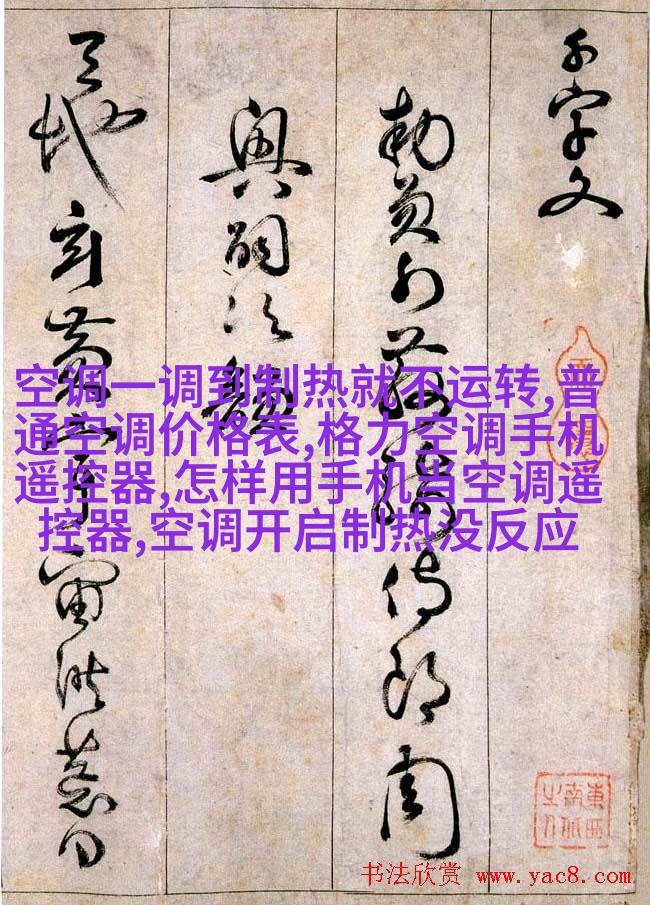 千字文
勅員外散騎侍郎周
興嗣次韻
天地玄黃宇宙洪荒日
空调一调到制热就不运转,普
通空调价格表,格力空调手机
遥控器,怎样用手机当空调遥
控器,空调开启制热没反应
東西
南北
之人
书法欣赏 www.yac8.com